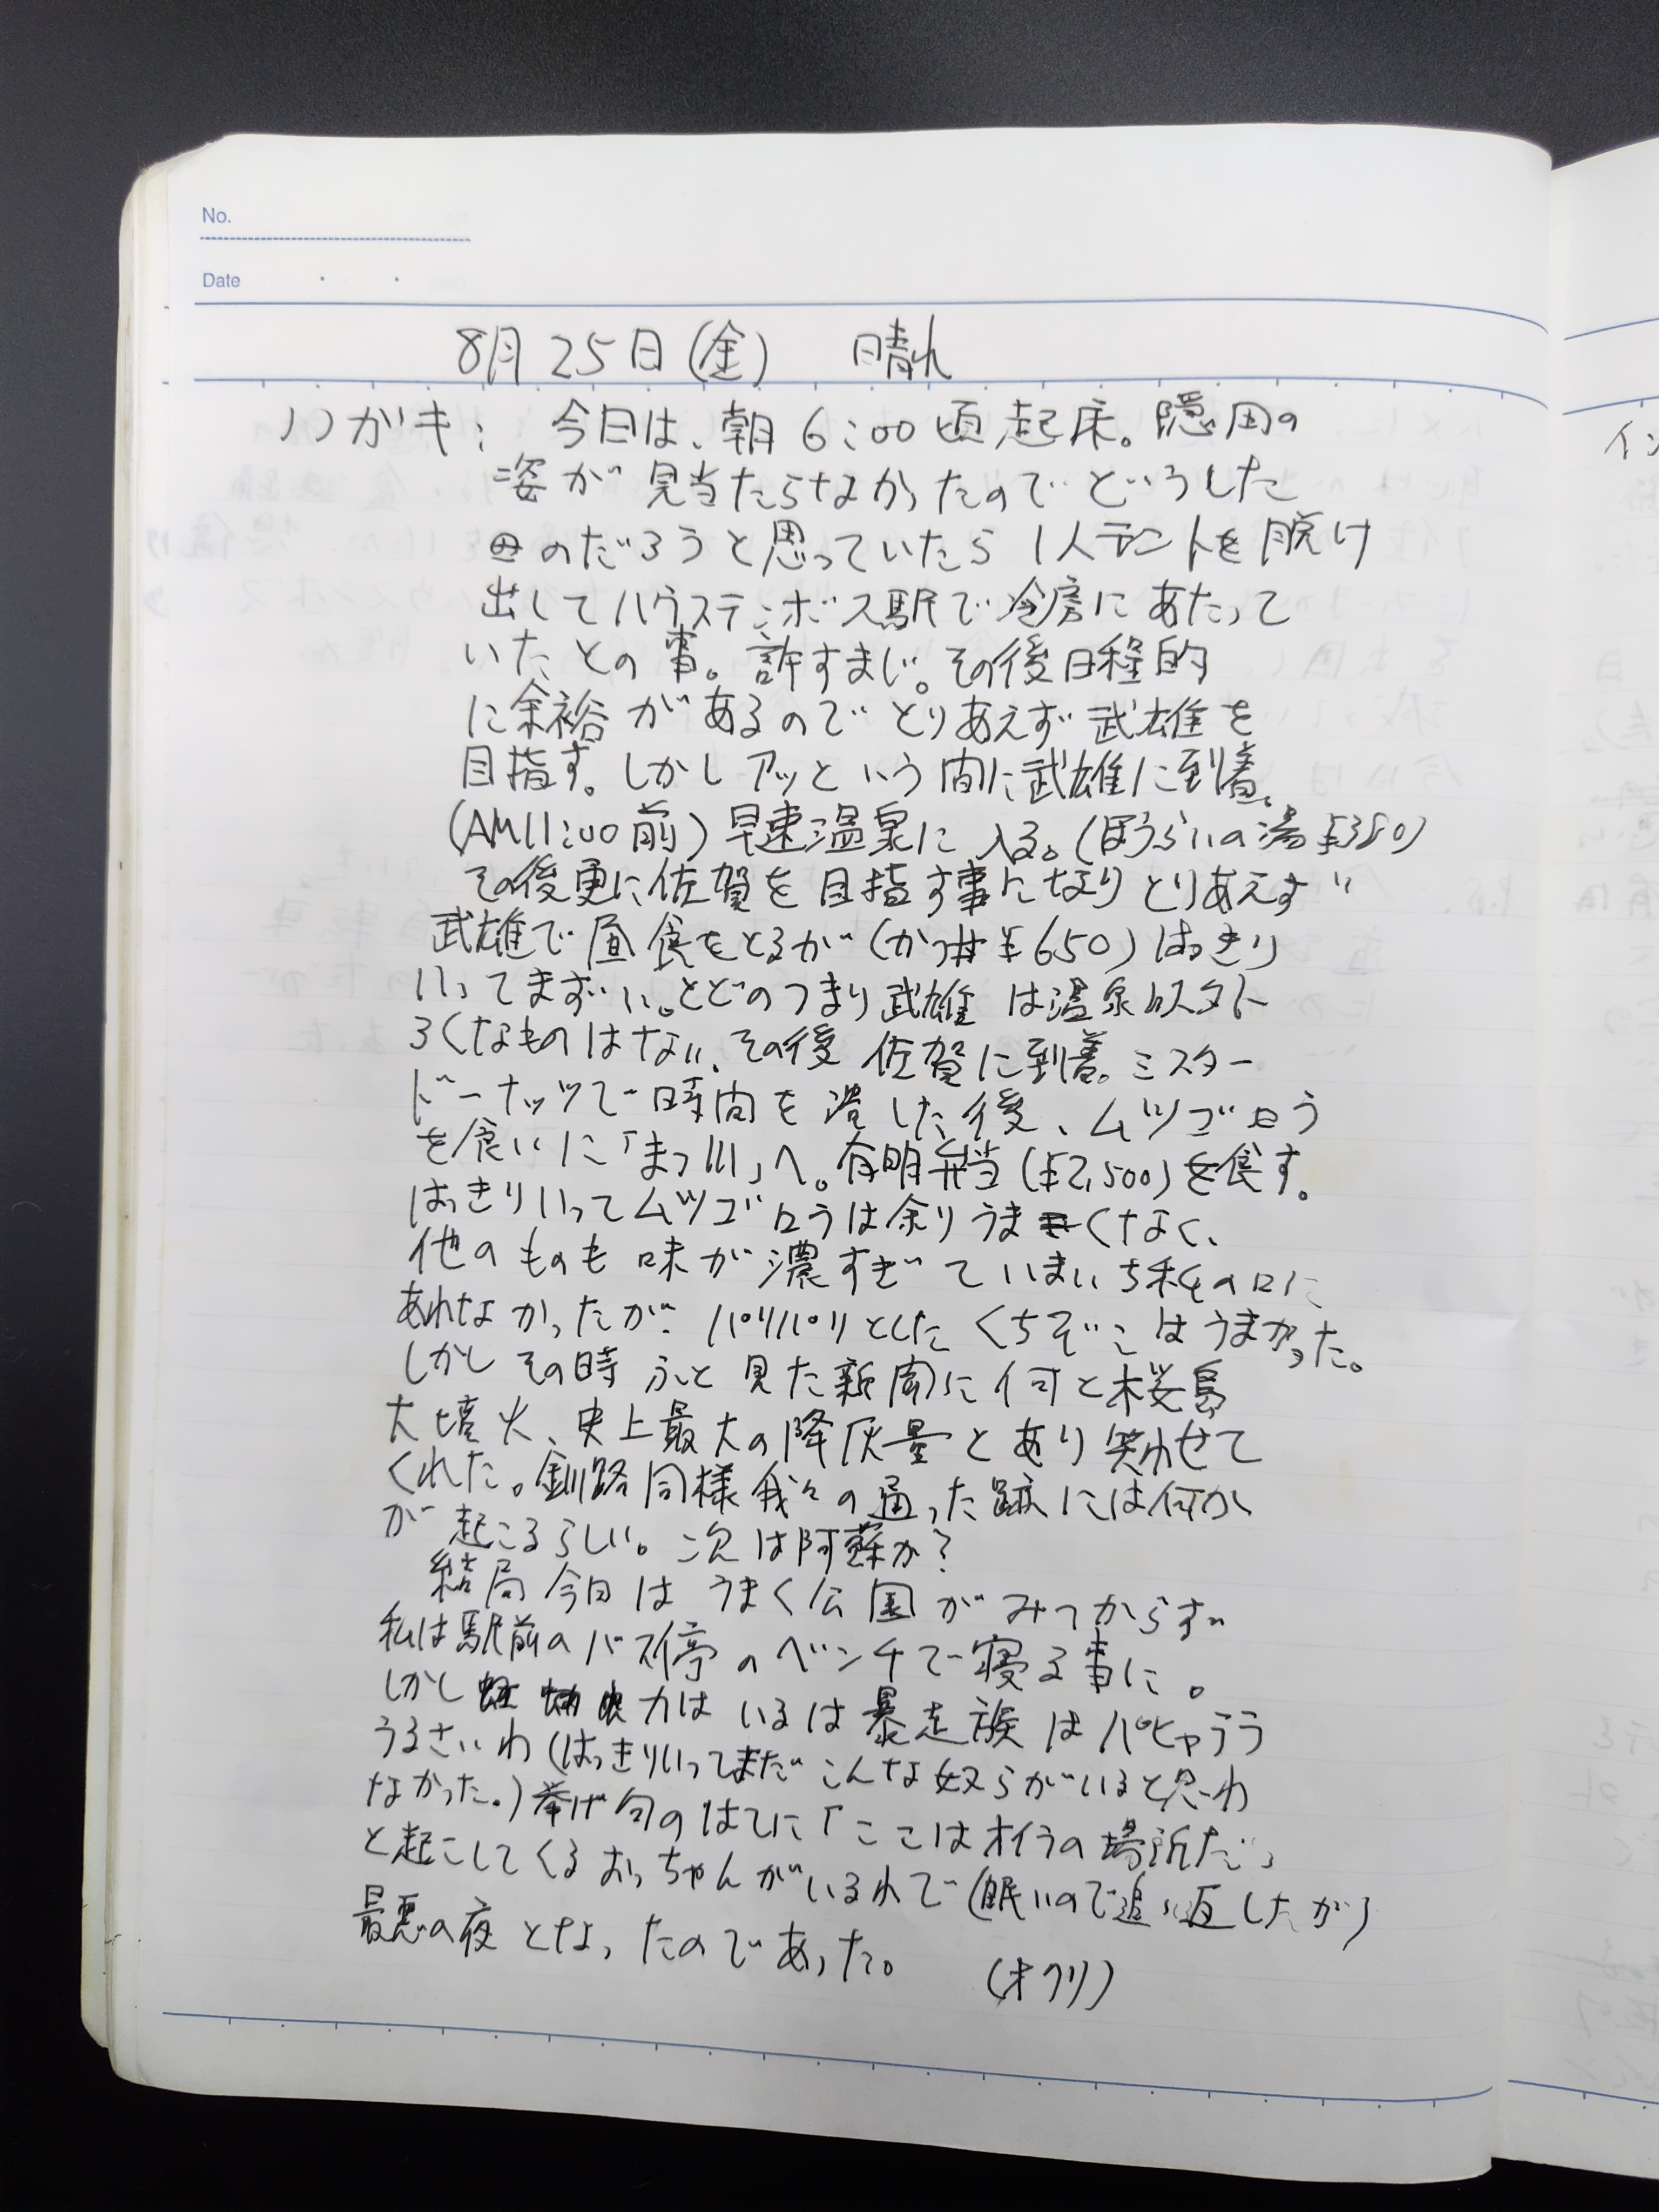 No.
Date
8月25日(金) 晴れ
ハガキ: 今日は、朝6:00頃起床。隠岡の
姿が見当たらなかったのでどうした
のだろうと思っていたら1人テントを脱け
出してハウステンボス駅で冷房にあたって
いたとの事。許すまじ。その後日程的
に余裕があるのでとりあえず武雄を
目指す。しかしアッという間に武雄に到着、
(AM11:00前)早速温泉に入る。(ほうらいの湯¥380)
その後更に佐賀を目指す事になりとりあえず
武雄で昼食をとるが(かつ丼¥650)はっきり
いってまずい。とどのつまり武雄は温泉以外
ろくなものはない、その後佐賀に到着。ミスター
ドーナッツで時間を潰した後、ムツゴロウ
を食いに「まつ川」へ。有明弁当(¥2,500)を食す。
はっきりいってムツゴロウは余りうまくなく、
他のものも味が濃すぎていまいち私の口に
あわなかったが、パリパリとしたくちぞこはうまかった。
しかしその時ふと見た新聞に何と桜島
大墳火、史上最大の降灰量とあり笑わせて
くれた。釧路同様我々の通った跡には何か
が起こるらしい。次は阿蘇か?
結局今日はうまく公園がみつからず
私は駅前のバス停のベンチで寝る事に。
しかし 力はいるは暴走族はパヒャララ
うるさいわ(はっきりいってまだこんな奴らがいると思わ
なかった。)挙げ句のはてに「ここはオイラの場所だ」
と起こしてくるおっちゃんがいるわで(眠いので追い返したが)
最悪の夜となったのであった。 (オワリ)
イン